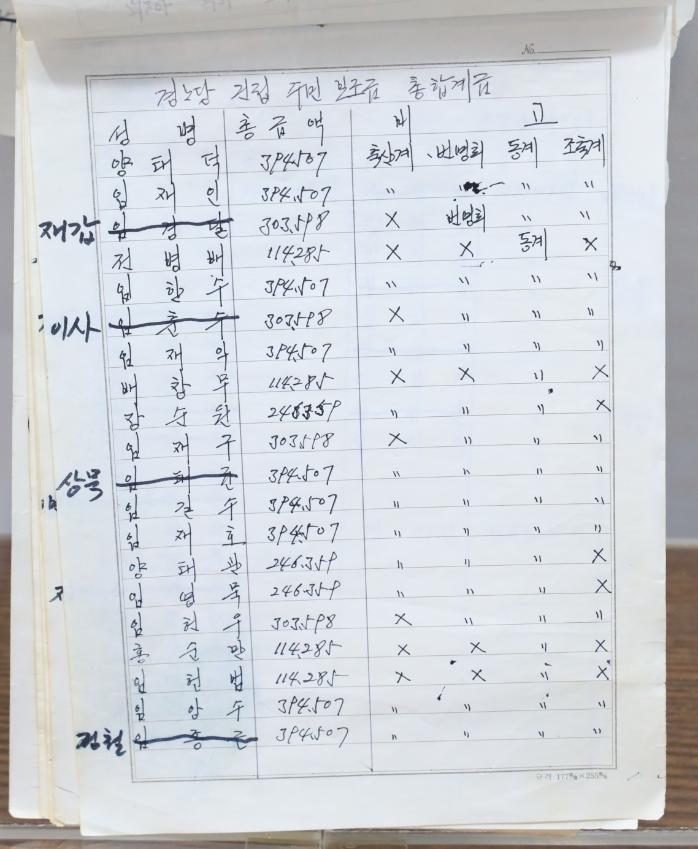 No.
경노당 건립 주민 보조금 총합계금
성 명 총금액 비 고
양태덕 394.507 축산계 번영회 동계 조축계
임재인 394.507 〃 〃 〃 〃
재갑 임경달 303.598 X 번영회 〃 〃
전병배 114.285 X X 동계 X
임한수 394.507 〃 〃 〃 〃
이사 임춘수 303.598 X 〃 〃 〃
임재익 394.507 〃 〃 〃 〃
배창무 114.285 X X 〃 X
장수원 246.359 〃 〃 〃 X
임재구 303.598 X 〃 〃 〃
상묵 임 394.507 〃 〃 〃 〃
임길수 394.507 〃 〃 〃 〃
임재호 394.507 〃 〃 〃 〃
양태관 246.359 〃 〃 〃 X
임병묵 246.359 〃 〃 〃 X
임헌우 303.598 X 〃 〃 〃
홍순만 114.285 X X 〃 X
임헌범 114.285 X X 〃 X
임양수 394.507 〃 〃 〃 〃
점철 임종근 394.507 〃 〃 〃 〃
규격 177㎜×255㎜